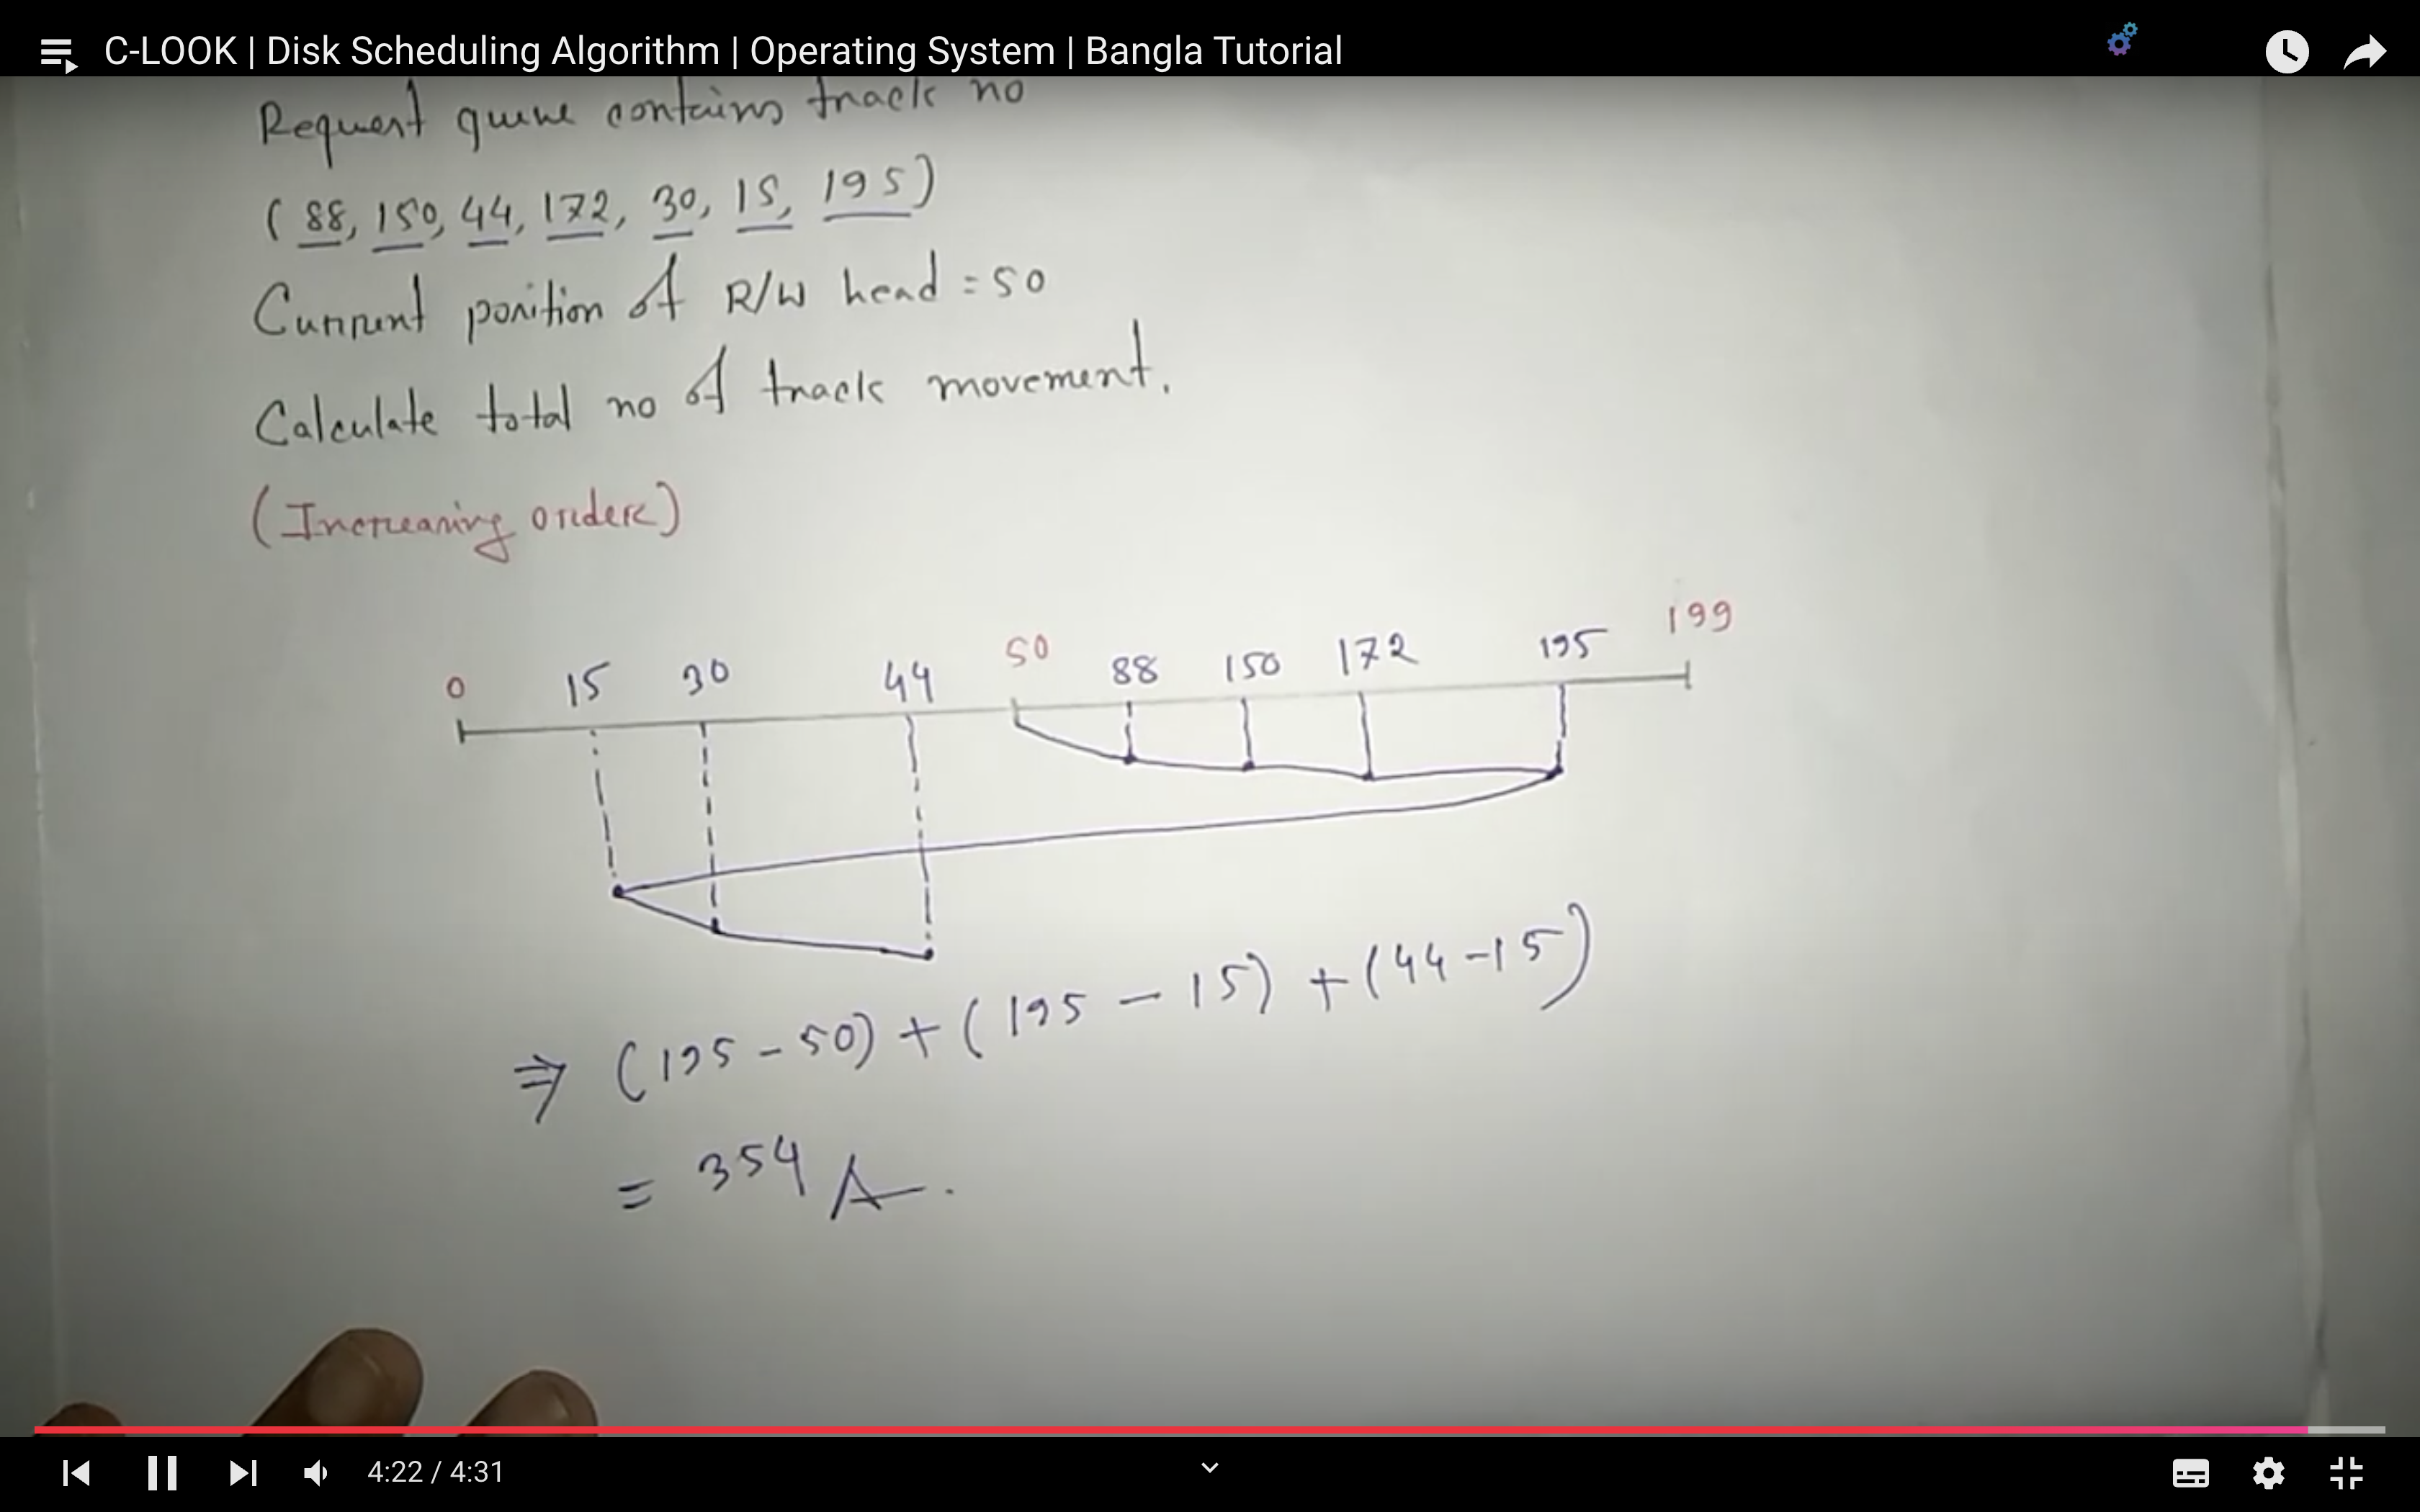 C-LOOK | Disk Scheduling Algorithm | Operating System | Bangla Tutorial
Request queue contains track no
( 88, 150, 44, 172, 30, 15, 195)
Current position of R/W head = 50
Calculate total no of track movement.
(Increasing order)
0 15 30 44 50 88 150 172 195 199
⇒ (195 - 50) + (195 - 15) + (44 - 15)
= 354 A.
4:22 / 4:31